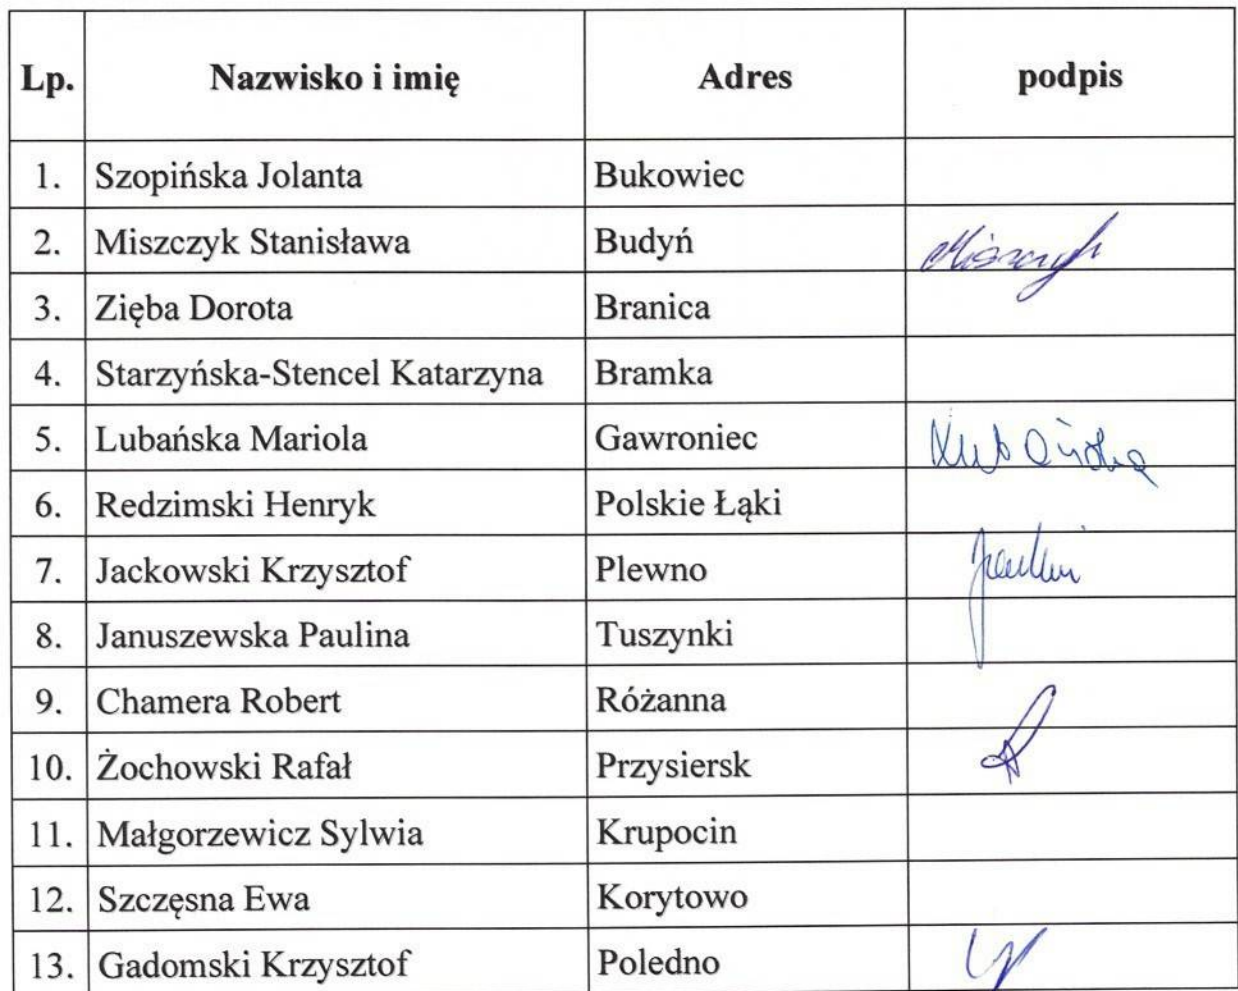 Lp. Nazwisko i imię Adres podpis
1. Szopińska Jolanta Bukowiec
2. Miszczyk Stanisława Budyń Miszczyk
3. Zięba Dorota Branica
4. Starzyńska-Stencel Katarzyna Bramka
5. Lubańska Mariola Gawroniec Lubańska
6. Redzimski Henryk Polskie Łąki
7. Jackowski Krzysztof Plewno
8. Januszewska Paulina Tuszynki
9. Chamera Robert Różanna
10. Żochowski Rafał Przysiersk
11. Małgorzewicz Sylwia Krupocin
12. Szczęsna Ewa Korytowo
13. Gadomski Krzysztof Poledno